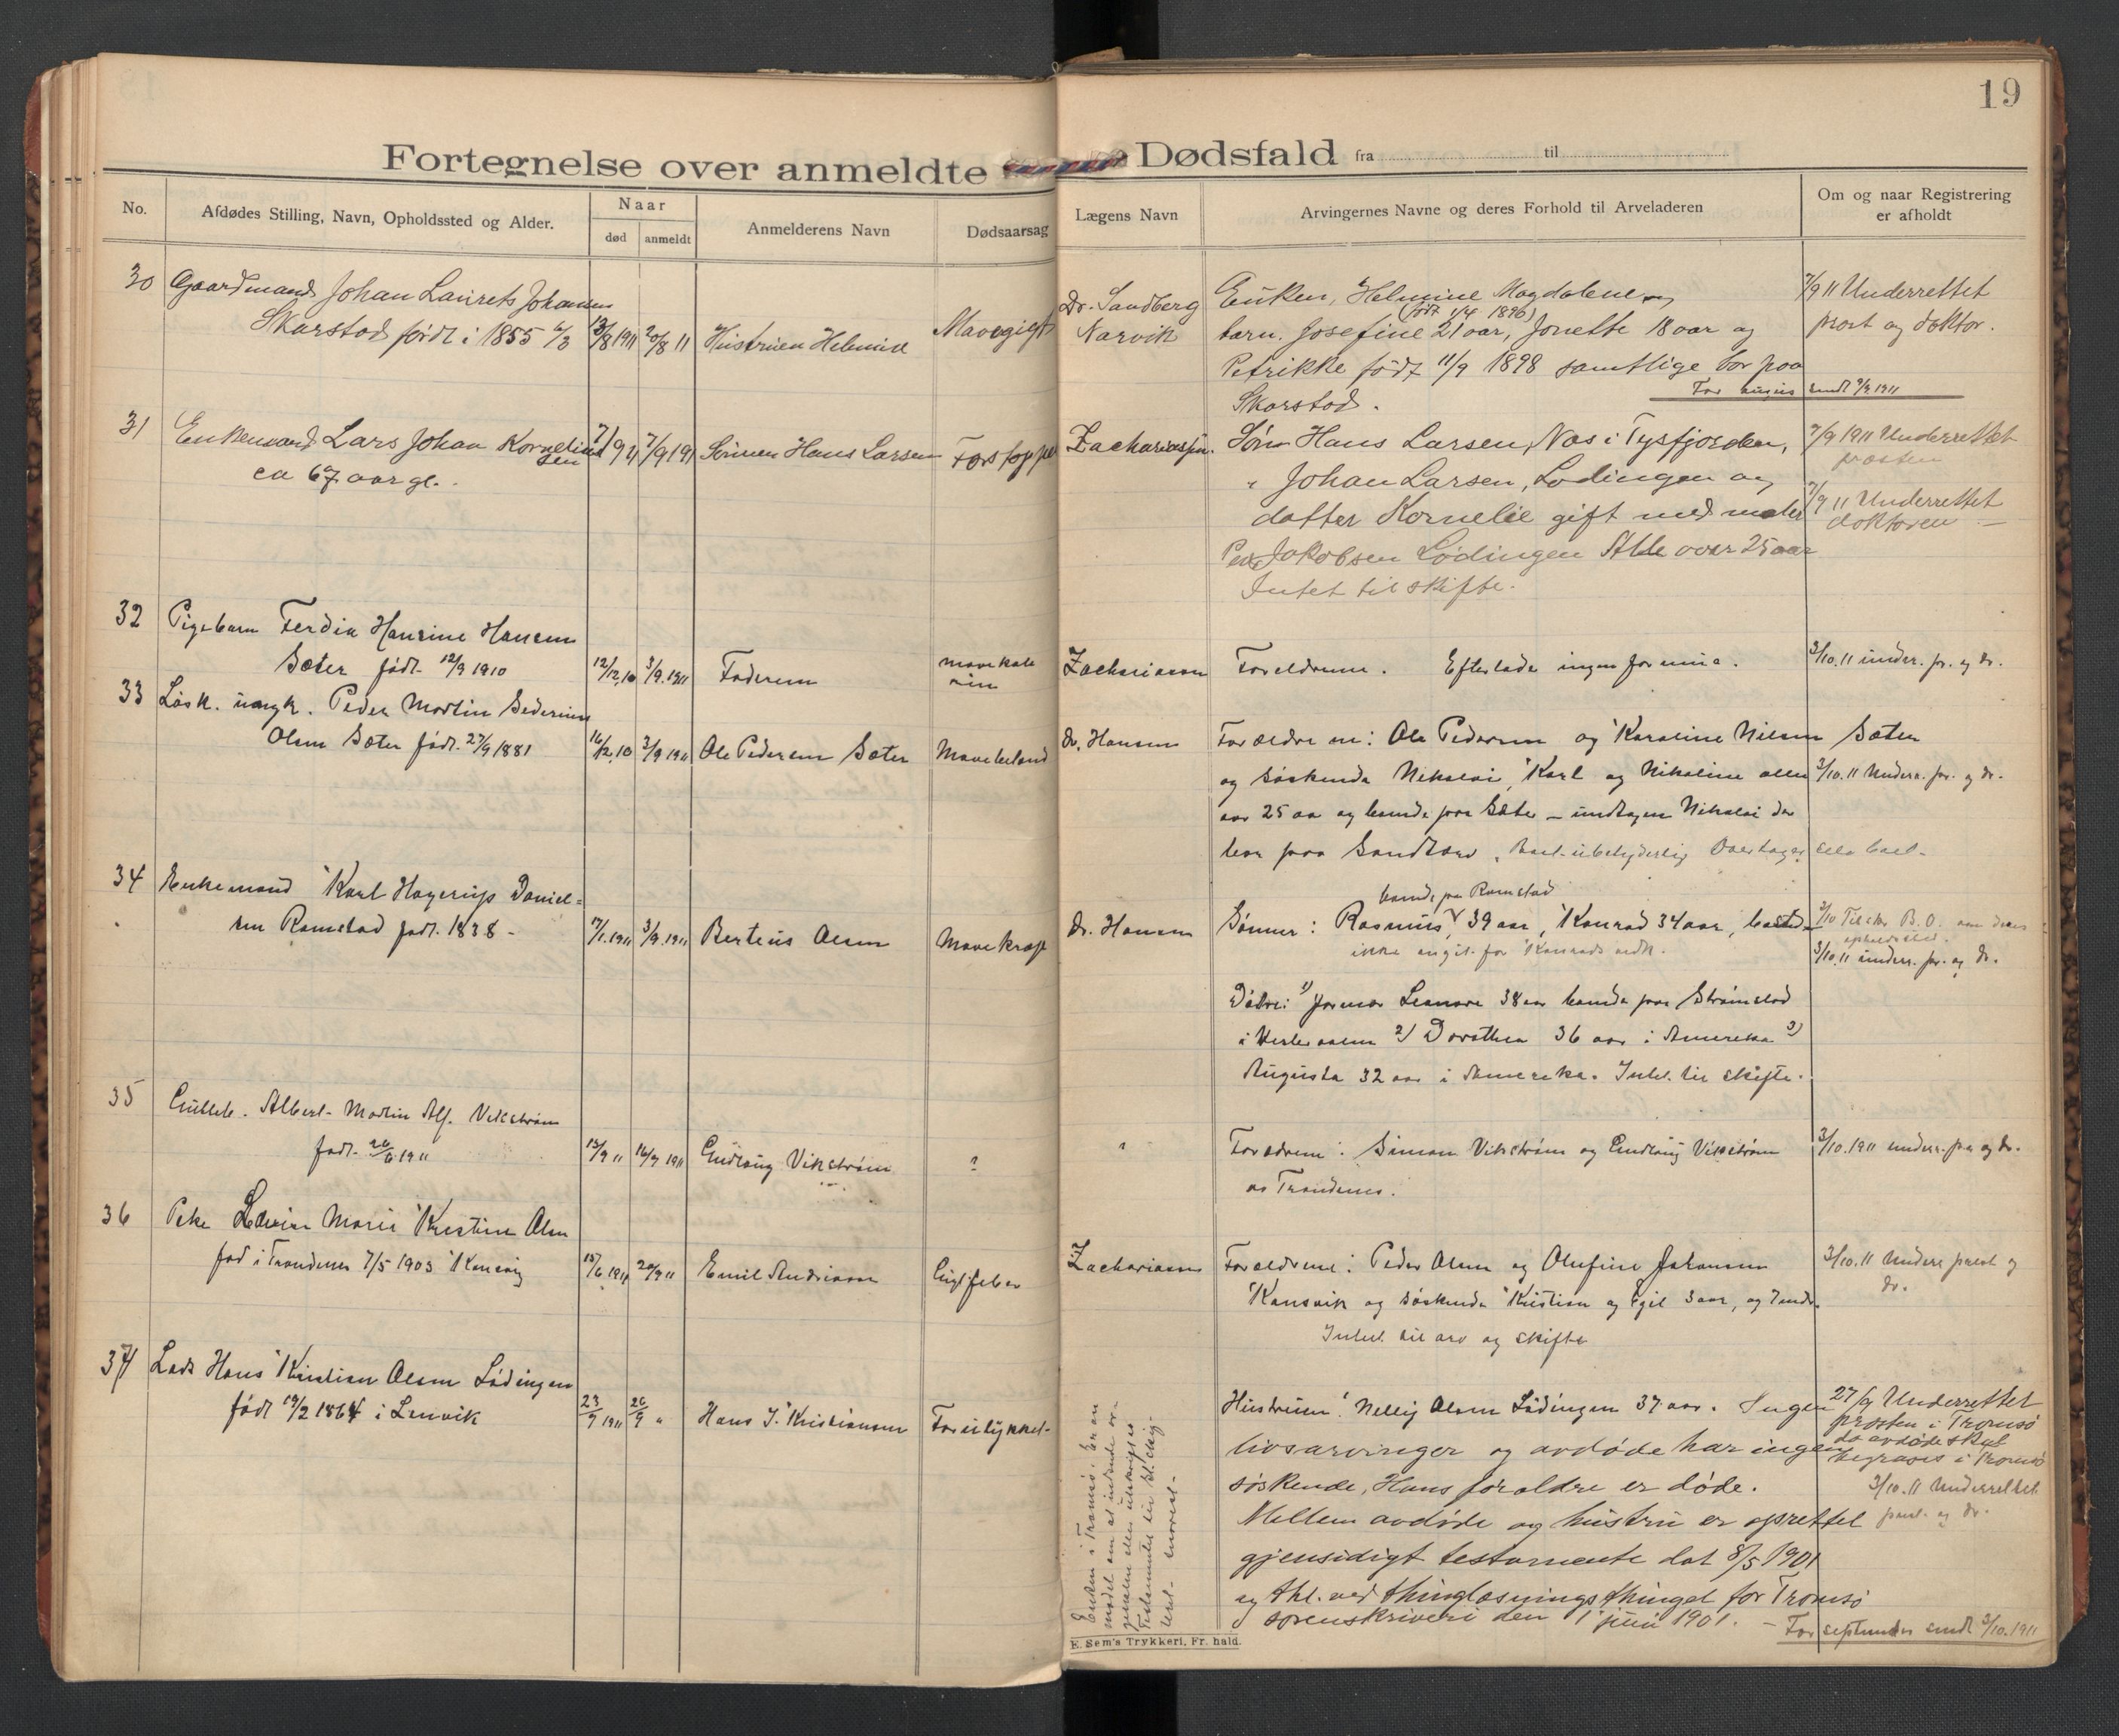 19
Fortegnelse over anmeldte Dødsfald fra til
No.
Afdødes Stilling, Navn, Opholdssted og Alder.
Naar
død
anmeldt
Anmelderens Navn
Dødsaarsag
Lægens Navn
Arvingernes Navne og deres Forhold til Arveladeren
Om og naar Registrering
er afholdt
30 Gaardmand Johan Laurets Johansen
Skarstad født i 1855 6/3
13/8 1911
20/8 11
Hustruen Helmine
Mavegigt
Dr. Sandberg
Narvik
Enken, Helmine Magdalene og
(født 1/4 1896)
barn. Josefine 21 aar, Jonette 18 aar og
Petrikke født 11/9 1898 samtlige bor paa
Skarstad.
7/9 11 Underrettet
prost og doktor.
For august sendt 9/9 1911
31 Enkemand Lars Johan Kornelius
sen
ca 67 aar gl.
7/9 11
7/9 1911
Sønnen Hans Larsen
Forstoppe
Zachariassen.
Søn Hans Larsen, Næs i Tysfjorden,
" Johan Larsen, Lødingen og
datter Kornelie gift med maler
Peder Jakobsen Lødingen Alle over 25 aar
Intet til skifte.
7/9 1911 Underrettet
prosten
7/9 11 Underrettet
doktoren
32 Pigebarn Ferdia Hansine Hansen
Sæter født 12/9 1910
12/12.10
3/9.1911
Faderen
Zachariasen
Foreldrene. Efterlade ingen formue.
3/10.11 under. pr. og dr.
33 Løsk. ungk. Peder Martin Sederius
Olsen Sæter født 27/9 1881
16/12.10
3/9 1911
Ole Pedersen Sæter
Dr. Hansen
Forældrene: Ole Pedersen og Karoline Nilsen Sæter
og søskende Nikolai, Karl og Nikoline alle
over 25 aar og boende paa Sæter – undtagen Nikolai der
bor paa Sandtorv. Boet ubetydelig Overtages selv boet.
3/10.11 Underr. pr. og dr.
34 Enkemand Karl Hagerup Daniel=
sen Ramstad født 1838 -
17/1.1911
3/9.1911
Berteus Olsen
Mavekræft
Dr. Hansen
boende paa Ramstad
Sønner: Rasmus 39 aar, Konrad 34 aar, bosted
ikke angit for Konrads vedk.
Døtre: 1) Leonore 38 aar boende paa Strømstad
i Vesteraalen 2) Dorothea 36 aar i Amerika 3)
Augusta 32 aar i Amerika. Intet til skifte.
opholdssted.
3/10.11 underr. pr. og dr.
35 Gutteb. Albert Martin Alf. Vikstrøm
født 26/6 1911
13/9 11
16/9 1911
Gudlaug Vikstrøm
?
"
Forældrene: Simon Vikstrøm og Gudlaug Vikstrøm
av Trondenes.
3/10.1911 underr. pr. og dr.
36 Pike Marie Kristine Olsen
fød i Trondenes 7/5 1903 Kansvig
15/6 1911
20/9 11
Emil Andreassen
Zachariasen
Forældrene: Peder Olsen og Olufine Johansen
Kansvik og søskende Kristian og Egil 3 aar, og
Intet til arv og skifte
3/10.11 Underr prest og
dr.
37 Lods Hans Kristian Olsen Lødingen
født 19/2 1864 i Lenvik
23/9 1911
26/9 "
Hans J. Kristiansen
Forulykket
Hustruen: Nelly Olsen Lødingen 37 aar. Ingen
livsarvinger og avdøde har ingen
søskende, Hans forældre er døde.
Mellem avdøde og hustru er oprettet
gjensidigt testamente dat 8/5 1901
og thl. ved thinglæsnings thinget for Tromsø
sorenskriveri den 1 juni 1901.
27/9 Underrettet
prosten i Tromsø
da avdøde skal
begraves i Tromsø
3/10.11 Underrettet
prest og dr.
For september sendt 3/10.1911
Enken i Tromsø. Er an
modet om at indsende or
ginalen eller utskrift av
Testamentet
E. Sem's Trykkeri, Fr. hald.